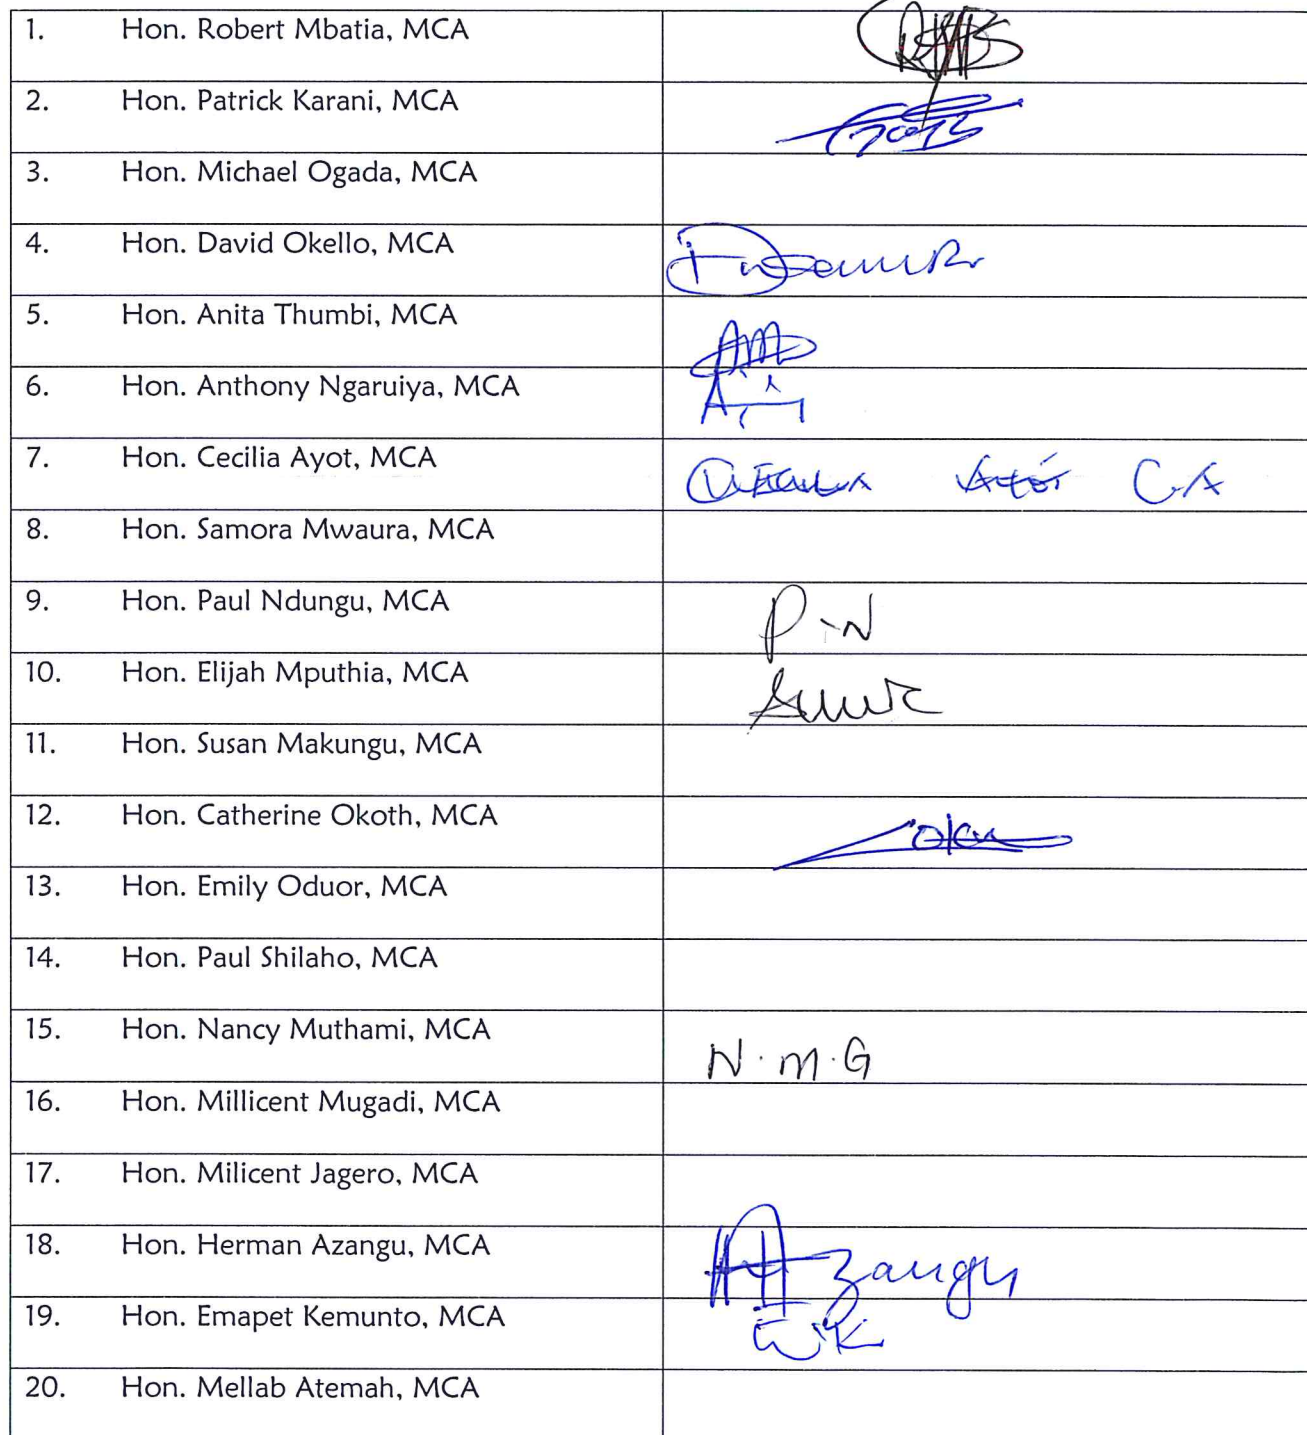 1. Hon. Robert Mbatia, MCA
2. Hon. Patrick Karani, MCA
3. Hon. Michael Ogada, MCA
4. Hon. David Okello, MCA
5. Hon. Anita Thumbi, MCA
6. Hon. Anthony Ngaruiya, MCA
7. Hon. Cecilia Ayot, MCA C.A
8. Hon. Samora Mwaura, MCA
9. Hon. Paul Ndungu, MCA P.N
10. Hon. Elijah Mputhia, MCA
11. Hon. Susan Makungu, MCA
12. Hon. Catherine Okoth, MCA
13. Hon. Emily Oduor, MCA
14. Hon. Paul Shilaho, MCA
15. Hon. Nancy Muthami, MCA N.M.G
16. Hon. Millicent Mugadi, MCA
17. Hon. Milicent Jagero, MCA
18. Hon. Herman Azangu, MCA Azangu
19. Hon. Emapet Kemunto, MCA E.K
20. Hon. Mellab Atemah, MCA